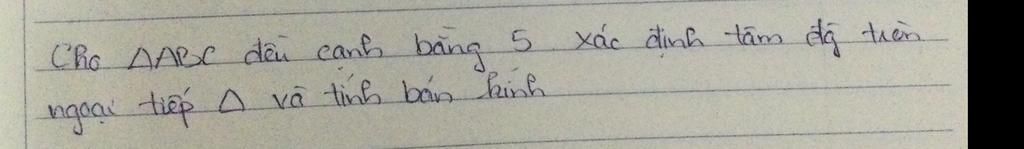 Cho ΔABC đều cạnh bằng 5 xác định tâm đg tròn
ngoại tiếp Δ và tính bán kính